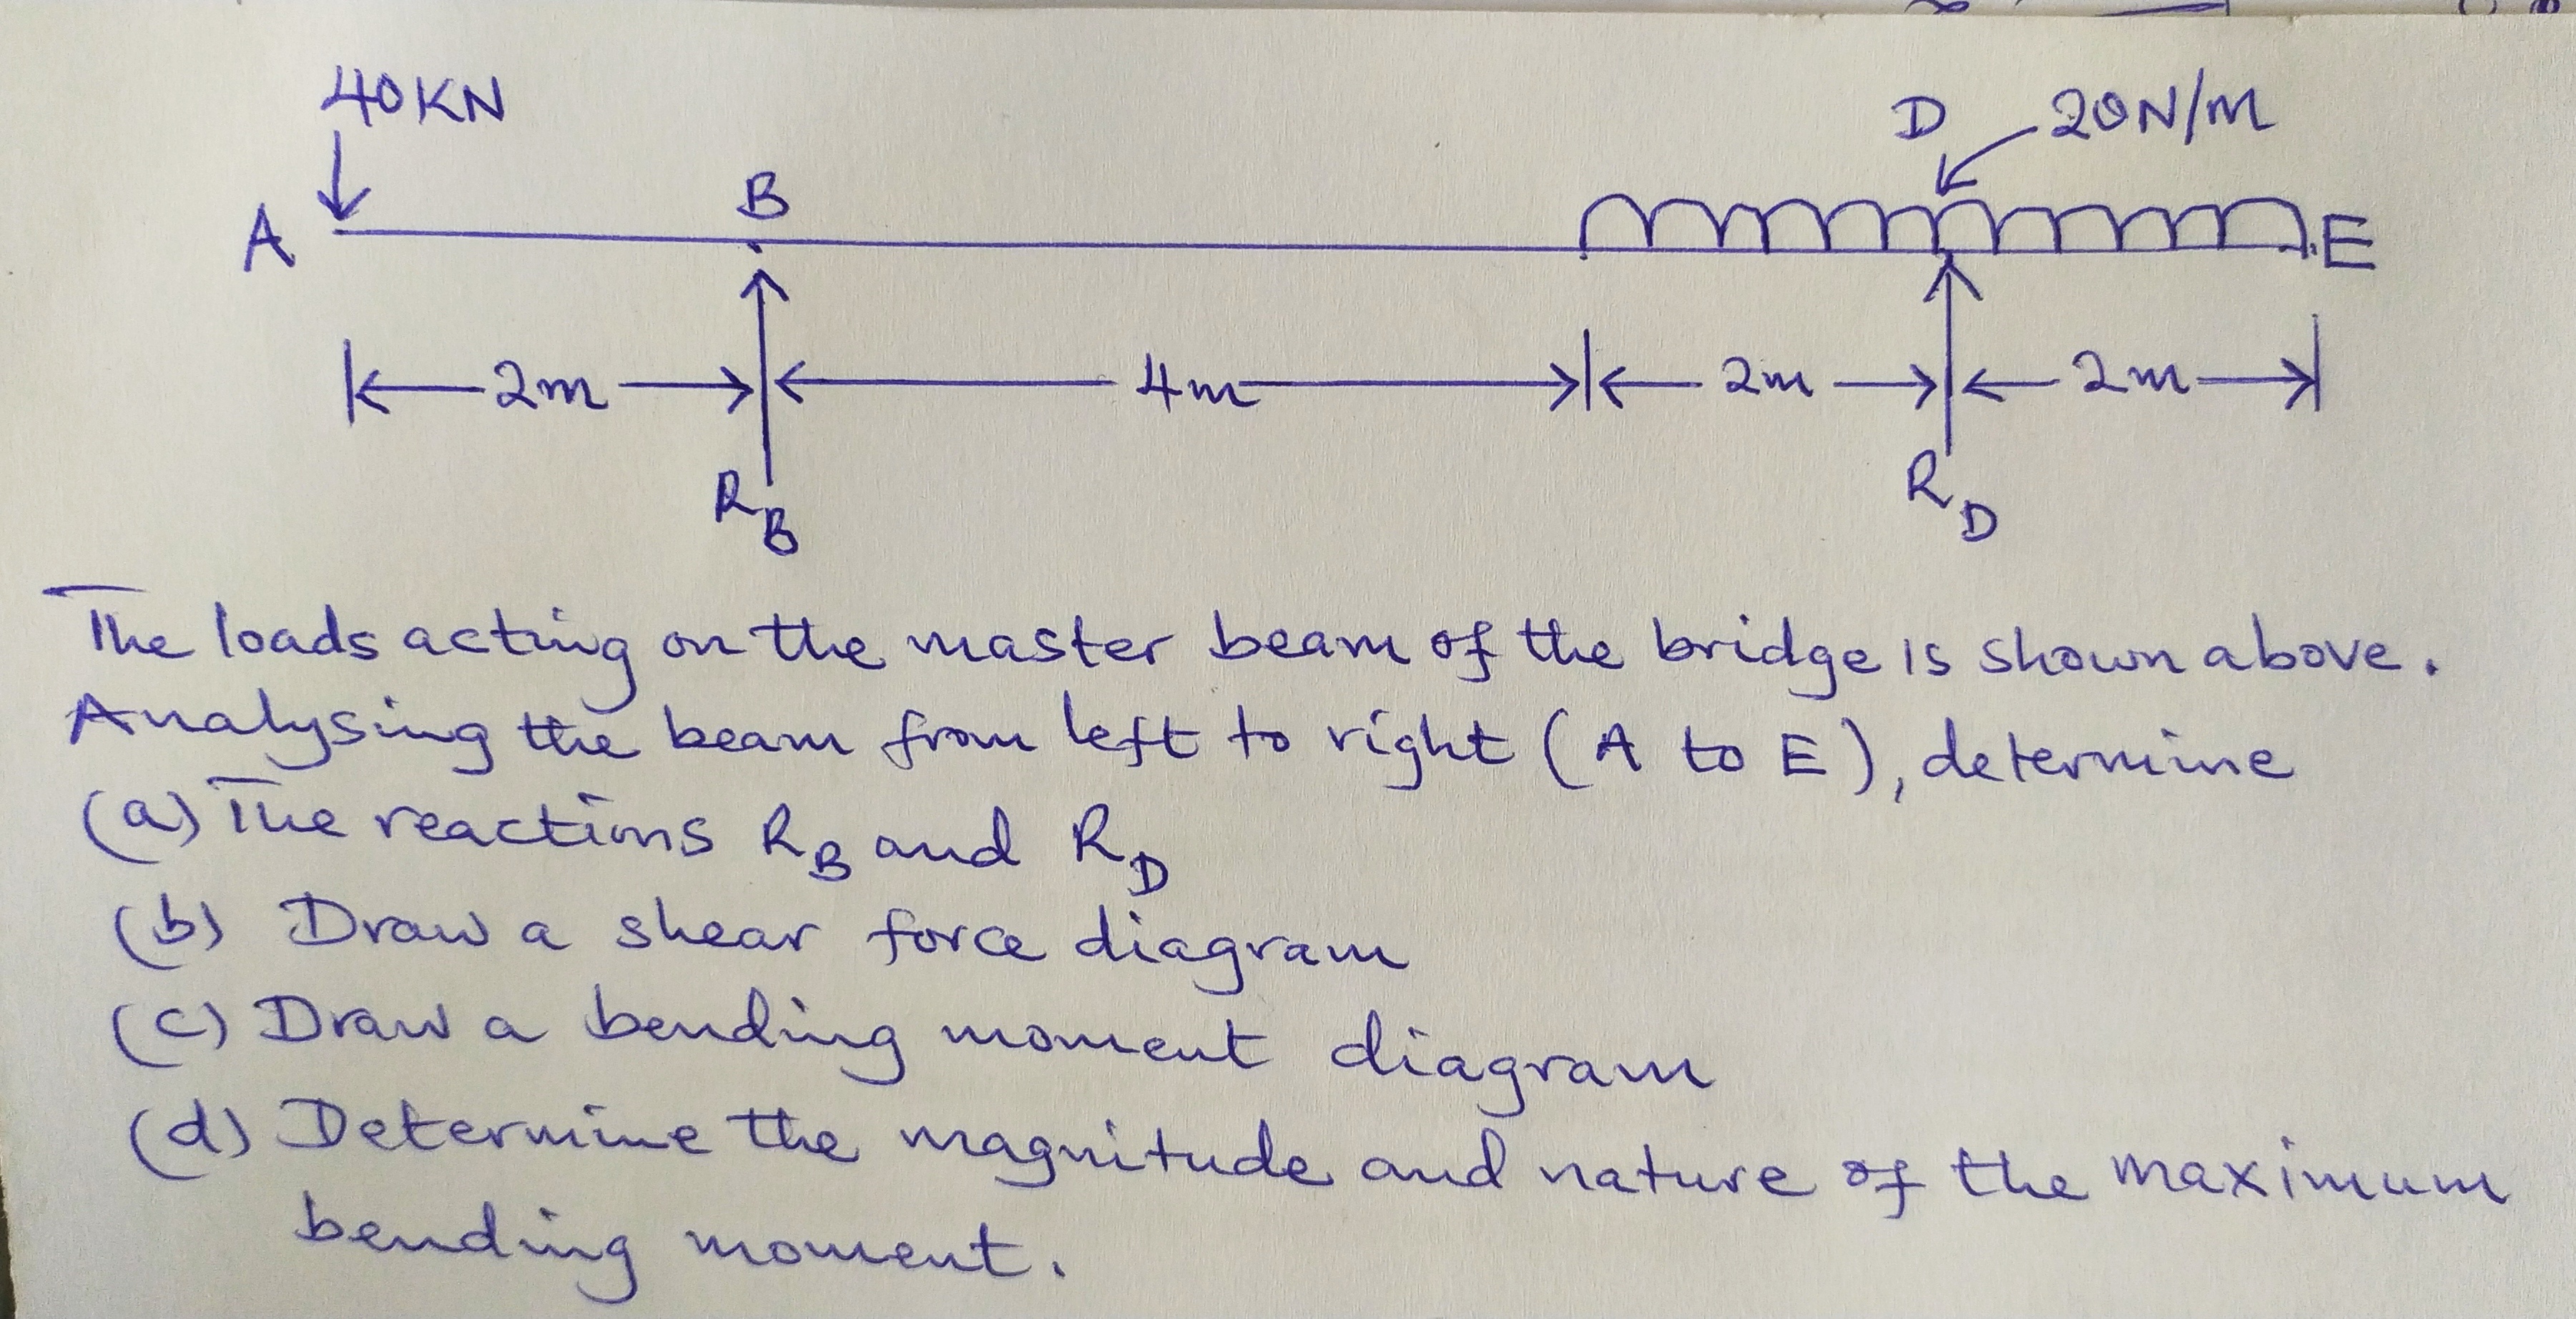 40KN
D 20N/m
A B E
2m 4m 2m 2m
R_B R_D
The loads acting on the master beam of the bridge is shown above.
Analysing the beam from left to right (A to E), determine
(a) The reactions R_B and R_D
(b) Draw a shear force diagram
(c) Draw a bending moment diagram
(d) Determine the magnitude and nature of the maximum
bending moment.